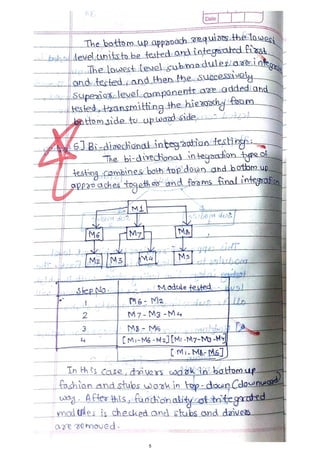 Date
The bottom up approach requires the lowest
level units to be tested and integrated first
The lowest level submodules are integ
and tested, and then the successively
superior level components are added and
tested, transmitting the hierarchy from
bottom side to upward side.
5] Bi-directional integration testing:
The bi-directional integration type of
testing combines both top down and bottom up
approaches together and forms final integration
M1
M6 M7 M8
M2 M3 M4 M5
Step No. Module tested
1 M6 - M2
2 M7 - M3 - M4
3 M8 - M5
4 [M1-M6-M2] [M1-M7-M3-M4]
[M1-M8-M5]
In this case, drivers work in bottom up
fashion and stubs work in top-down (downward)
way. After this, functionality of integrated
modules is checked and stubs and drivers
are removed.
5